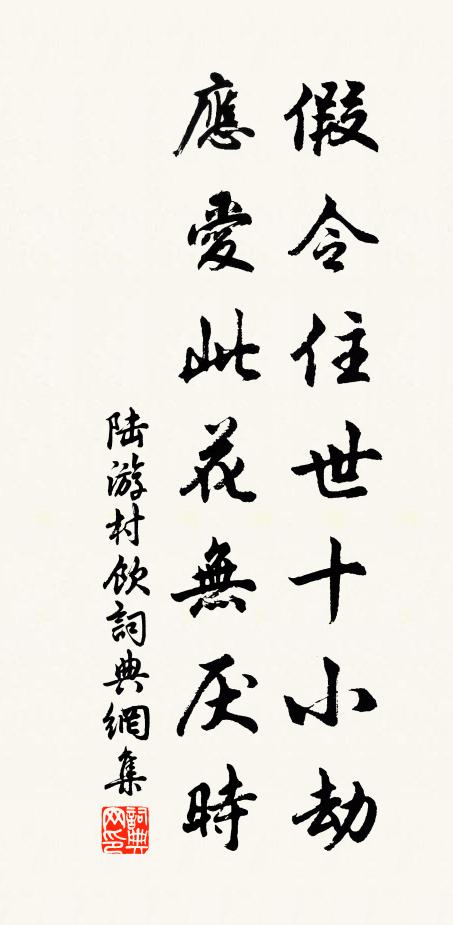 假令住世十小劫
應愛此花無厌時
陆游村飲詞典網集
詞典网印